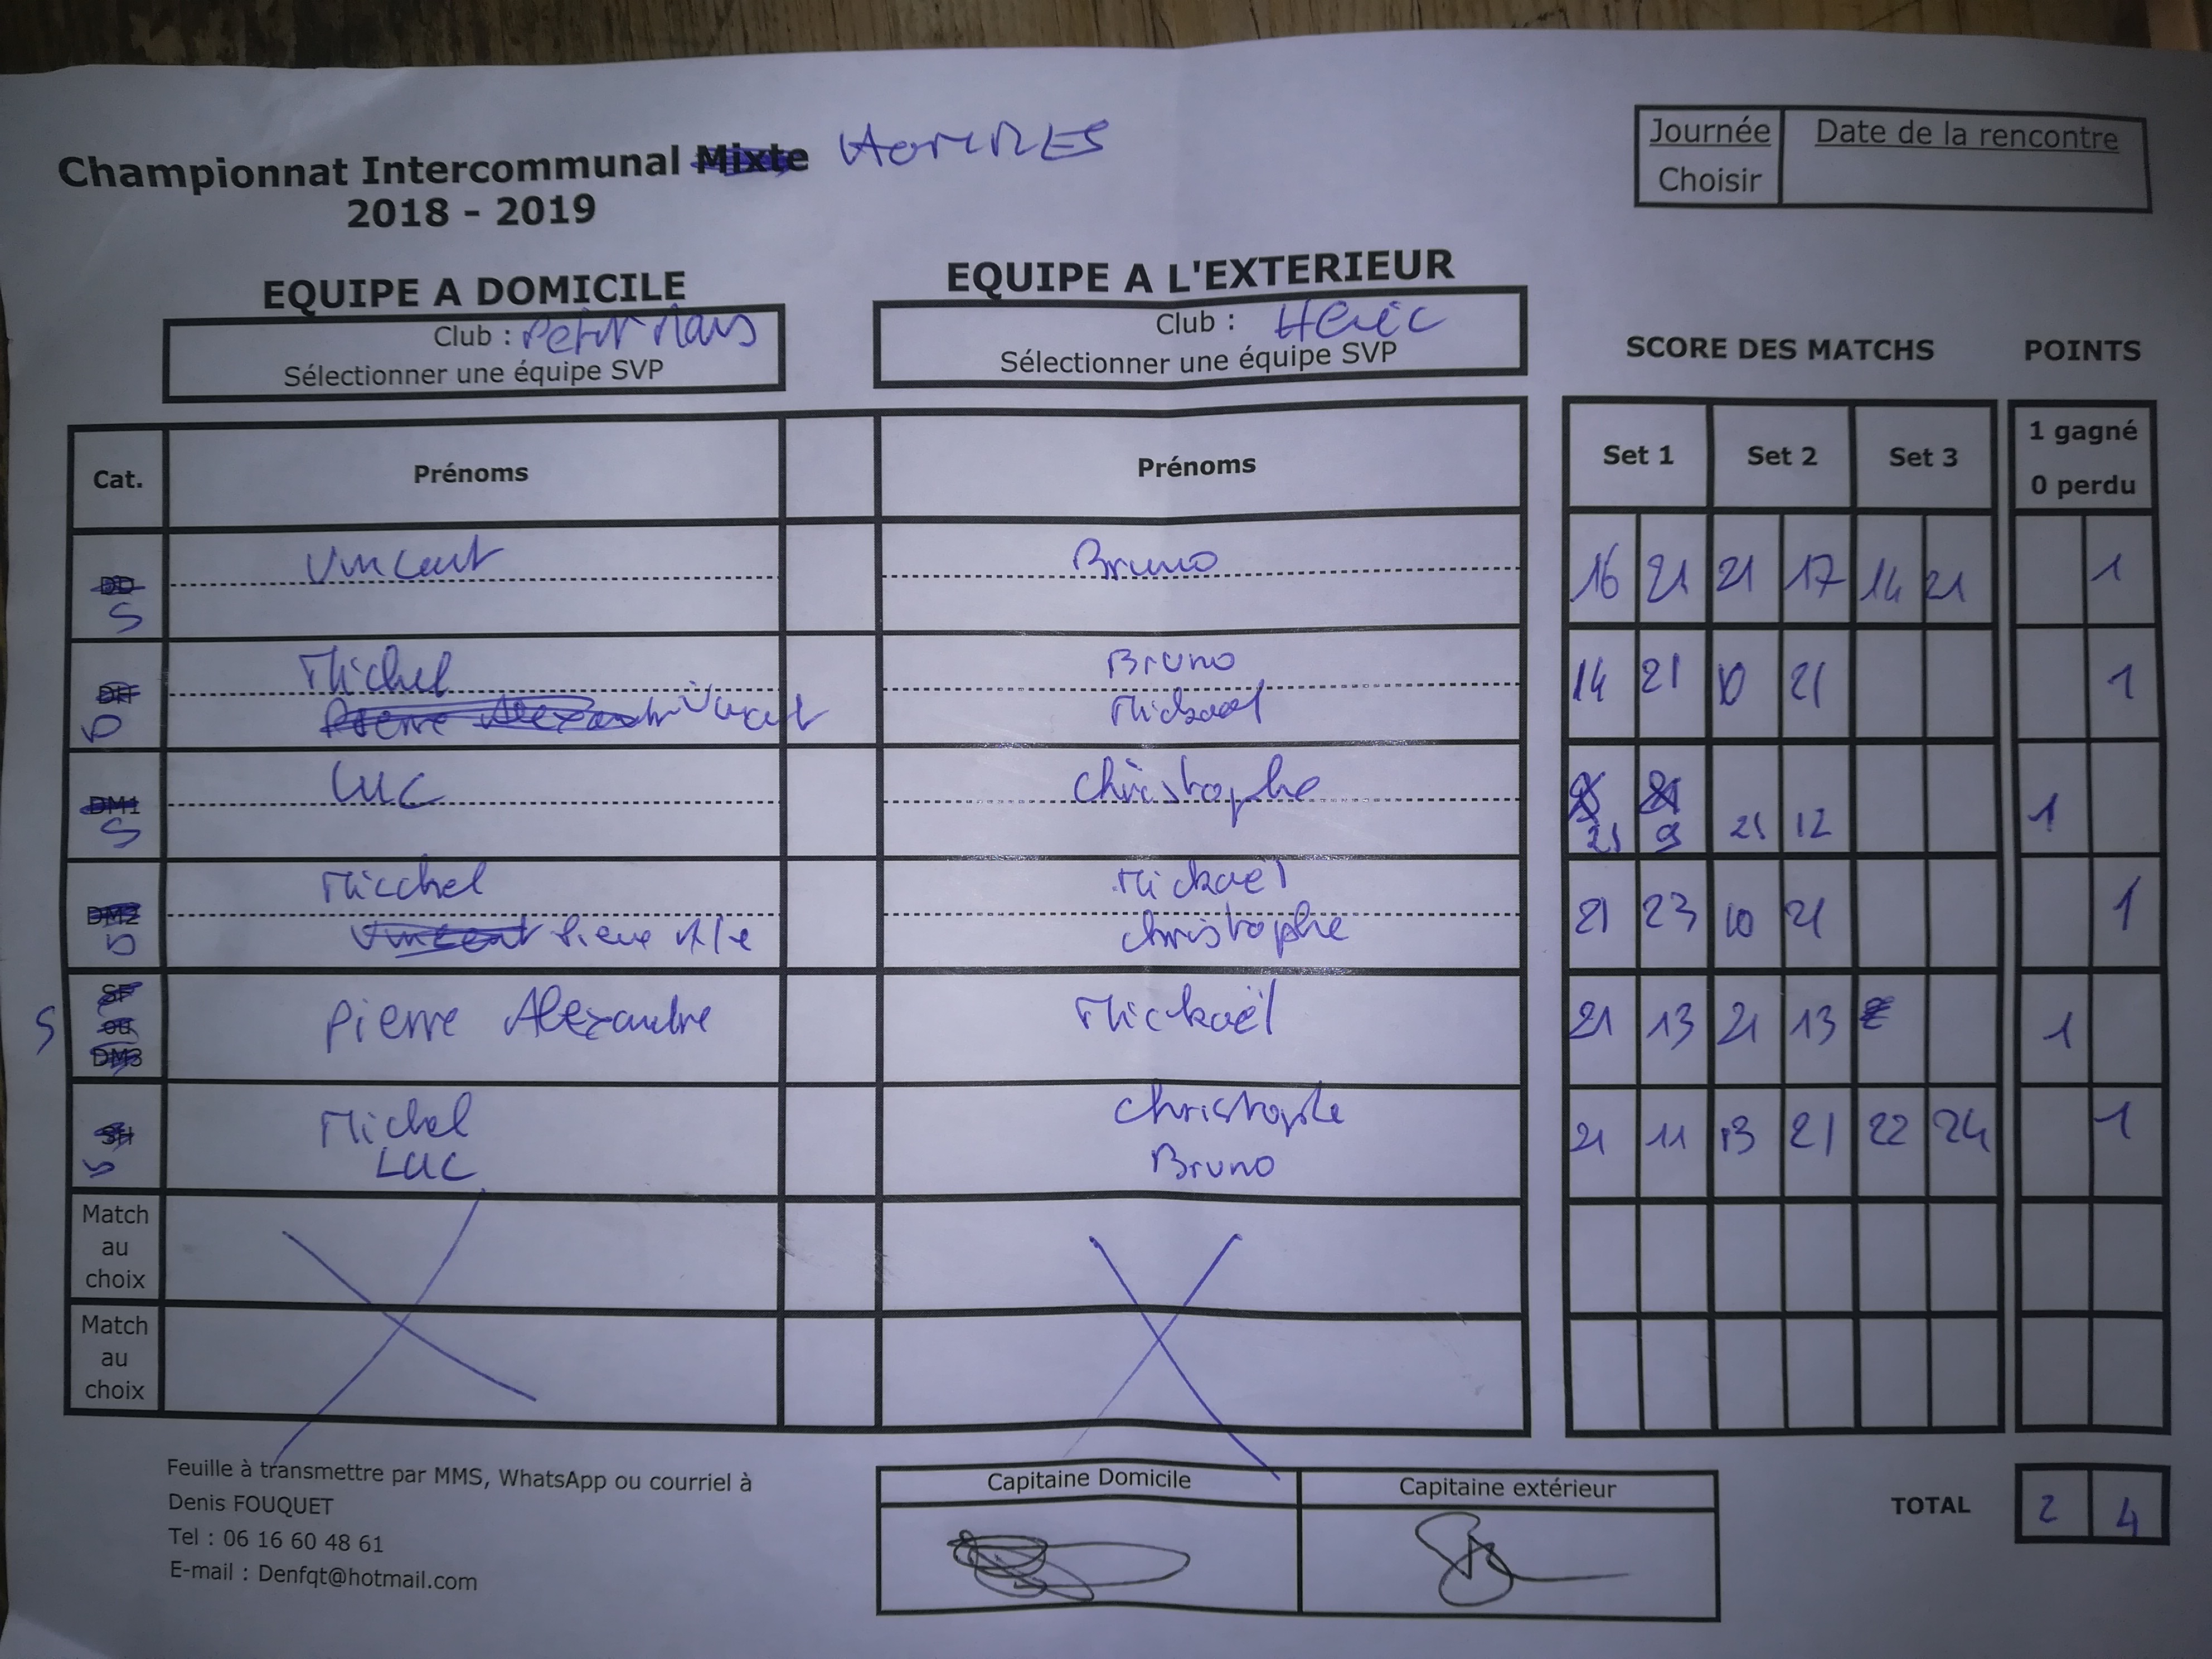 Championnat Intercommunal Mixte HOMMES
2018 - 2019
Journée Date de la rencontre
Choisir
EQUIPE A DOMICILE
Club : Petit Mars
Sélectionner une équipe SVP
EQUIPE A L'EXTERIEUR
Club : Héric
Sélectionner une équipe SVP
SCORE DES MATCHS POINTS
Cat. Prénoms Prénoms Set 1 Set 2 Set 3 1 gagné
0 perdu
DD Vincent Bruno 16 21 21 17 14 21 1
S
DH Michel Bruno 14 21 10 21 1
D Pierre Alexandre Vincent Mickael
DM1 Luc Christophe
S 21 9 21 12 1
DM2 Micchel Mickaël 21 23 10 21 1
D Vincent Pierre Ale Christophe
SF
S ou Pierre Alexandre Mickaël 21 13 21 13 1
DM3
SH Michel Christophe 21 11 13 21 22 24 1
Luc Bruno
Match
au
choix
Match
au
choix
Feuille à transmettre par MMS, WhatsApp ou courriel à
Denis FOUQUET
Tel : 06 16 60 48 61
E-mail : Denfqt@hotmail.com
Capitaine Domicile Capitaine extérieur
TOTAL 2 4